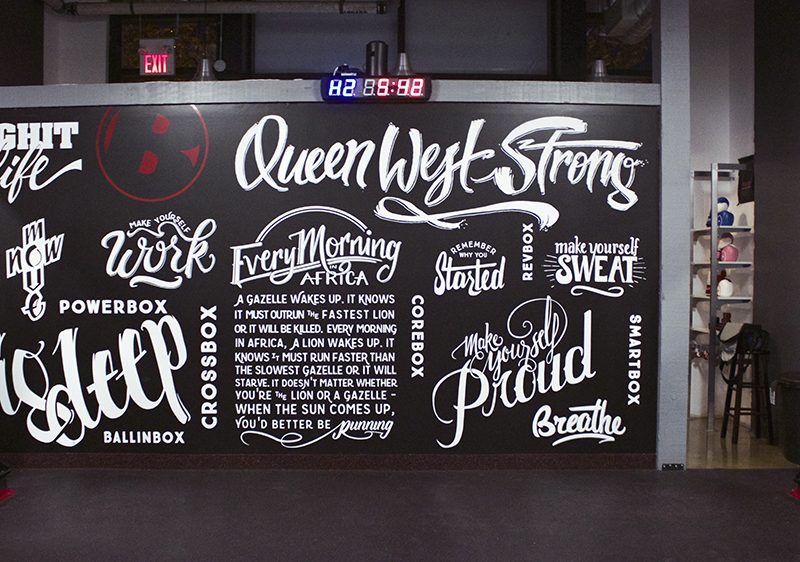 EXIT
H2 5:42
GHIT
life
B
Queen West Strong
MAKE YOURSELF
Work
now
POWERBOX
Every Morning
IN
AFRICA
A GAZELLE WAKES UP. IT KNOWS
IT MUST OUTRUN THE FASTEST LION
OR IT WILL BE KILLED. EVERY MORNING
IN AFRICA, A LION WAKES UP. IT
KNOWS IT MUST RUN FASTER THAN
THE SLOWEST GAZELLE OR IT WILL
STARVE. IT DOESN'T MATTER WHETHER
YOU'RE THE LION OR A GAZELLE -
WHEN THE SUN COMES UP,
YOU'D BETTER BE running
REMEMBER
WHY YOU
Started
REVBOX
make yourself
SWEAT
CROSSBOX
COREBOX
Make
yourself
Proud
SMARTBOX
Breathe
deep
BALLINBOX